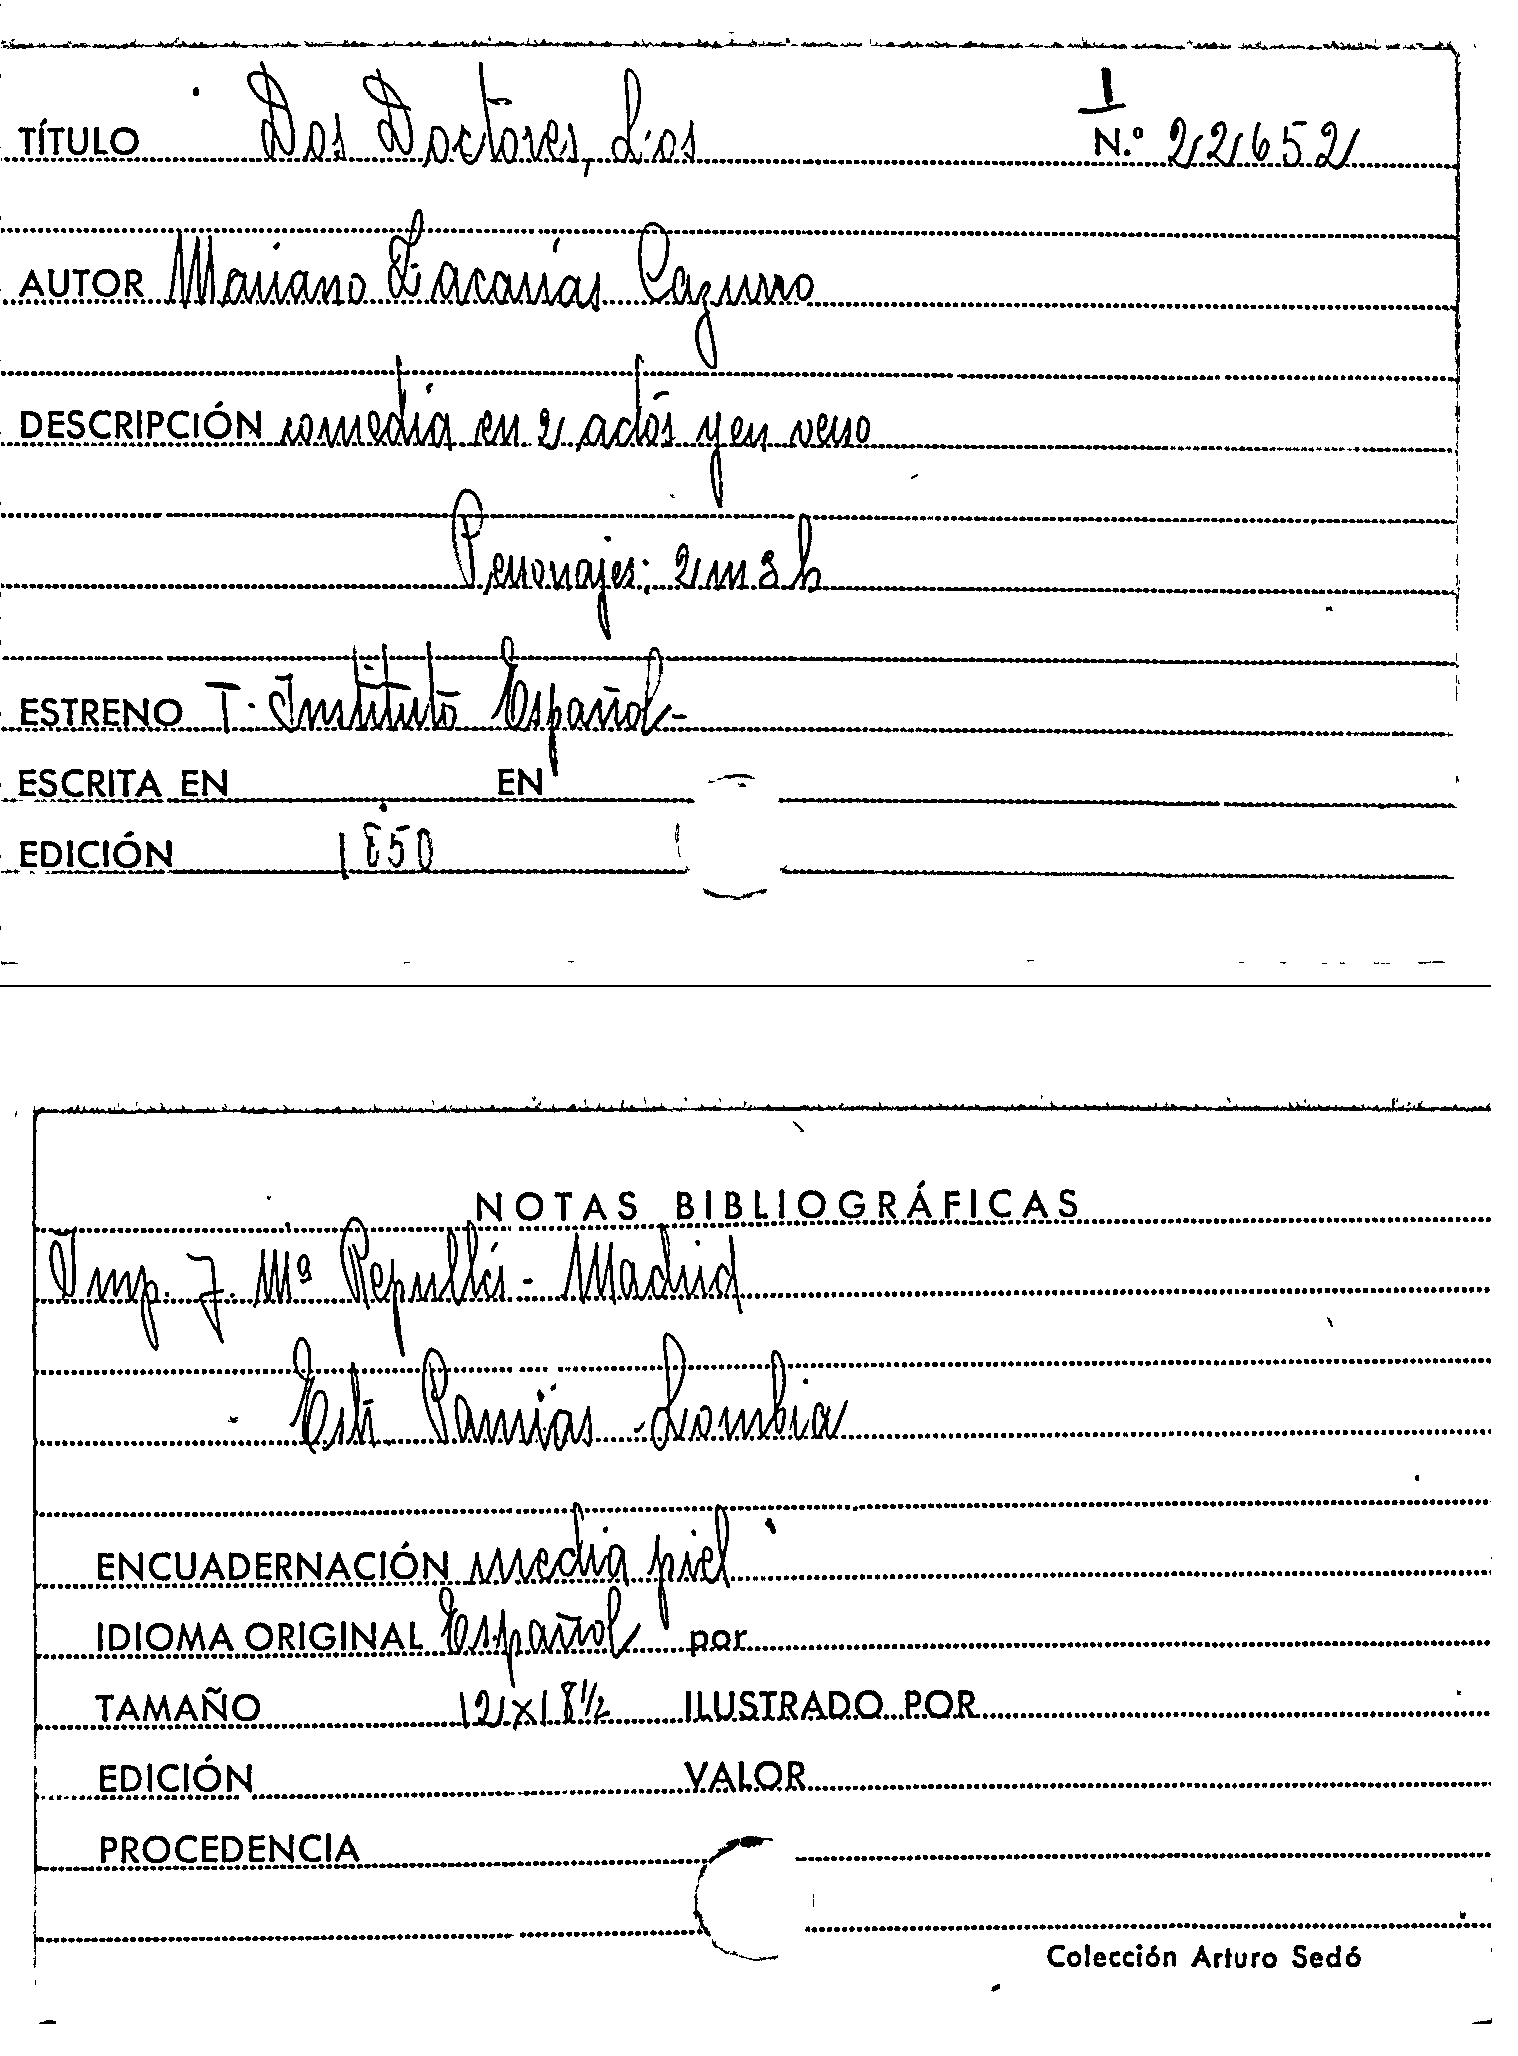 I
TÍTULO Dos Doctores, Los N.º 22652
AUTOR Mariano Zacarías Cazurro
DESCRIPCIÓN comedia en 2 actos y en verso
Personajes: 2 m 3 h
ESTRENO T. Instituto Español-
ESCRITA EN EN
EDICIÓN 1850
NOTAS BIBLIOGRÁFICAS
Imp. J. Mª Repullés - Madrid
Pamias - Lombia
ENCUADERNACIÓN media piel
IDIOMA ORIGINAL Español por
TAMAÑO 12x18½ ILUSTRADO POR
EDICIÓN VALOR
PROCEDENCIA
Colección Arturo Sedó